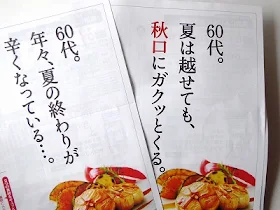 60代。
夏は越せても、
秋口にガクッとくる。
60代。
年々、夏の終わりが
辛くなっている…。